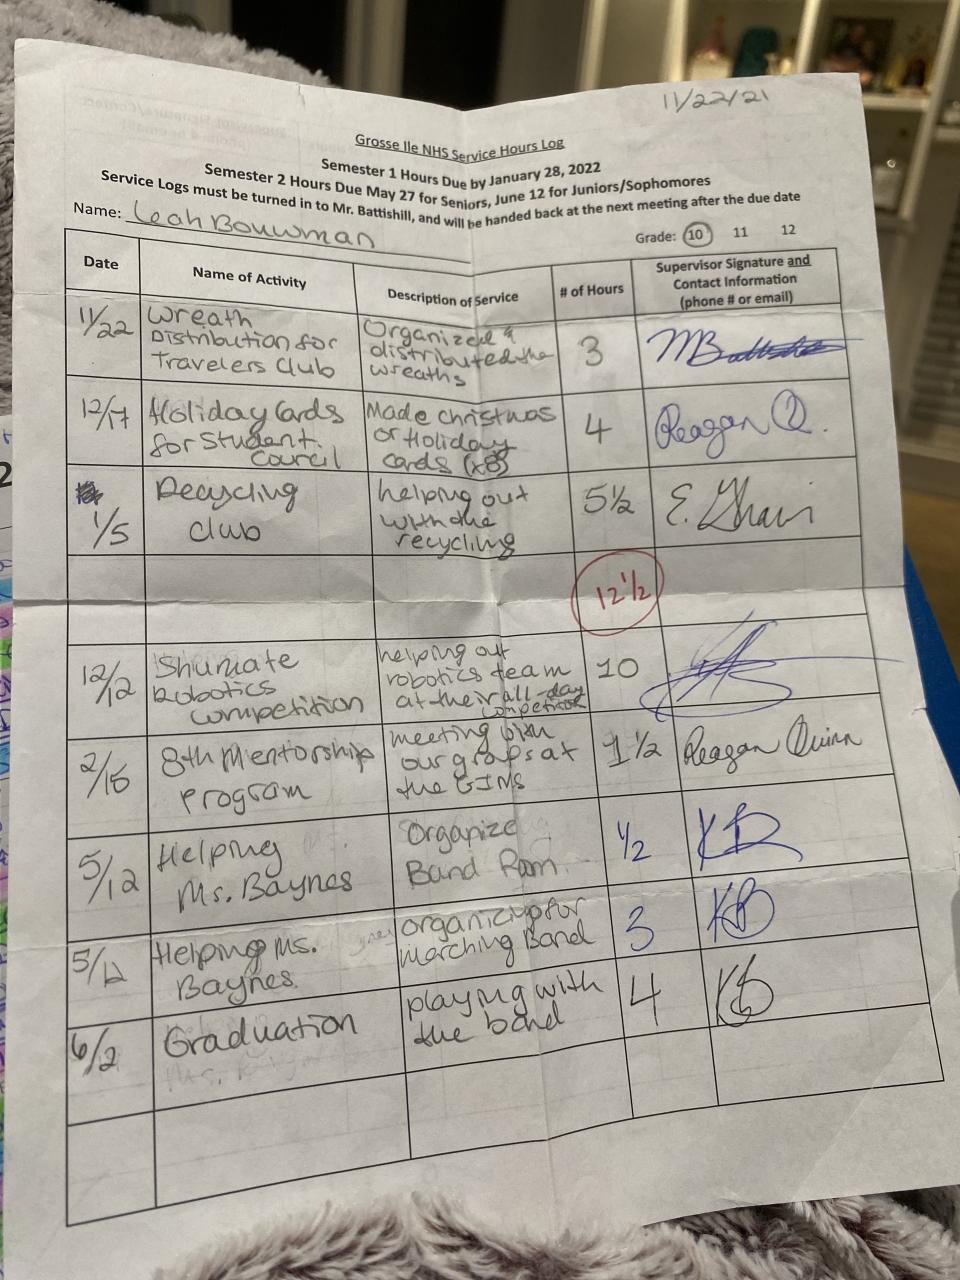 11/22/21
Grosse Ile NHS Service Hours Log
Semester 1 Hours Due by January 28, 2022
Semester 2 Hours Due May 27 for Seniors, June 12 for Juniors/Sophomores
Service Logs must be turned in to Mr. Battishill, and will be handed back at the next meeting after the due date
Name: Leah Bouwman
Grade: 10 11 12
Date
Name of Activity
Description of Service
# of Hours
Supervisor Signature and
Contact Information
(phone # or email)
11/22
Wreath
Distribution for
Travelers Club
Organized &
distributed the
wreaths
3
12/17
Holiday Cards
for Student
Council
Made christmas
or Holiday
cards (x8)
4
Reagan Q.
1/5
Recycling
Club
helping out
with the
recycling
5 1/2
E.
12 1/2
12/12
Shumate
Robotics
competition
helping out
robotics team
at their all-day
competition
10
2/15
8th Mentorship
Program
meeting with
our groups at
the GIMS
1 1/2
Reagan Quinn
5/12
Helping
Ms. Baynes
Organize
Band Room
1/2
KB
5/12
Helping Ms.
Baynes
organizing for
Marching Band
3
KB
6/2
Graduation
playing with
the band
4
KB